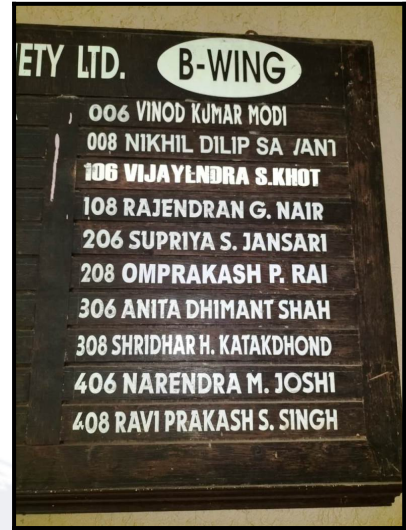 IETY LTD. B-WING
006 VINOD KUMAR MODI
008 NIKHIL DILIP
106 VIJAYENDRA S.KHOT
108 RAJENDRAN G. NAIR
206 SUPRIYA S. JANSARI
208 OMPRAKASH P. RAI
306 ANITA DHIMANT SHAH
308 SHRIDHAR H. KATAKDHOND
406 NARENDRA M. JOSHI
408 RAVI PRAKASH S. SINGH